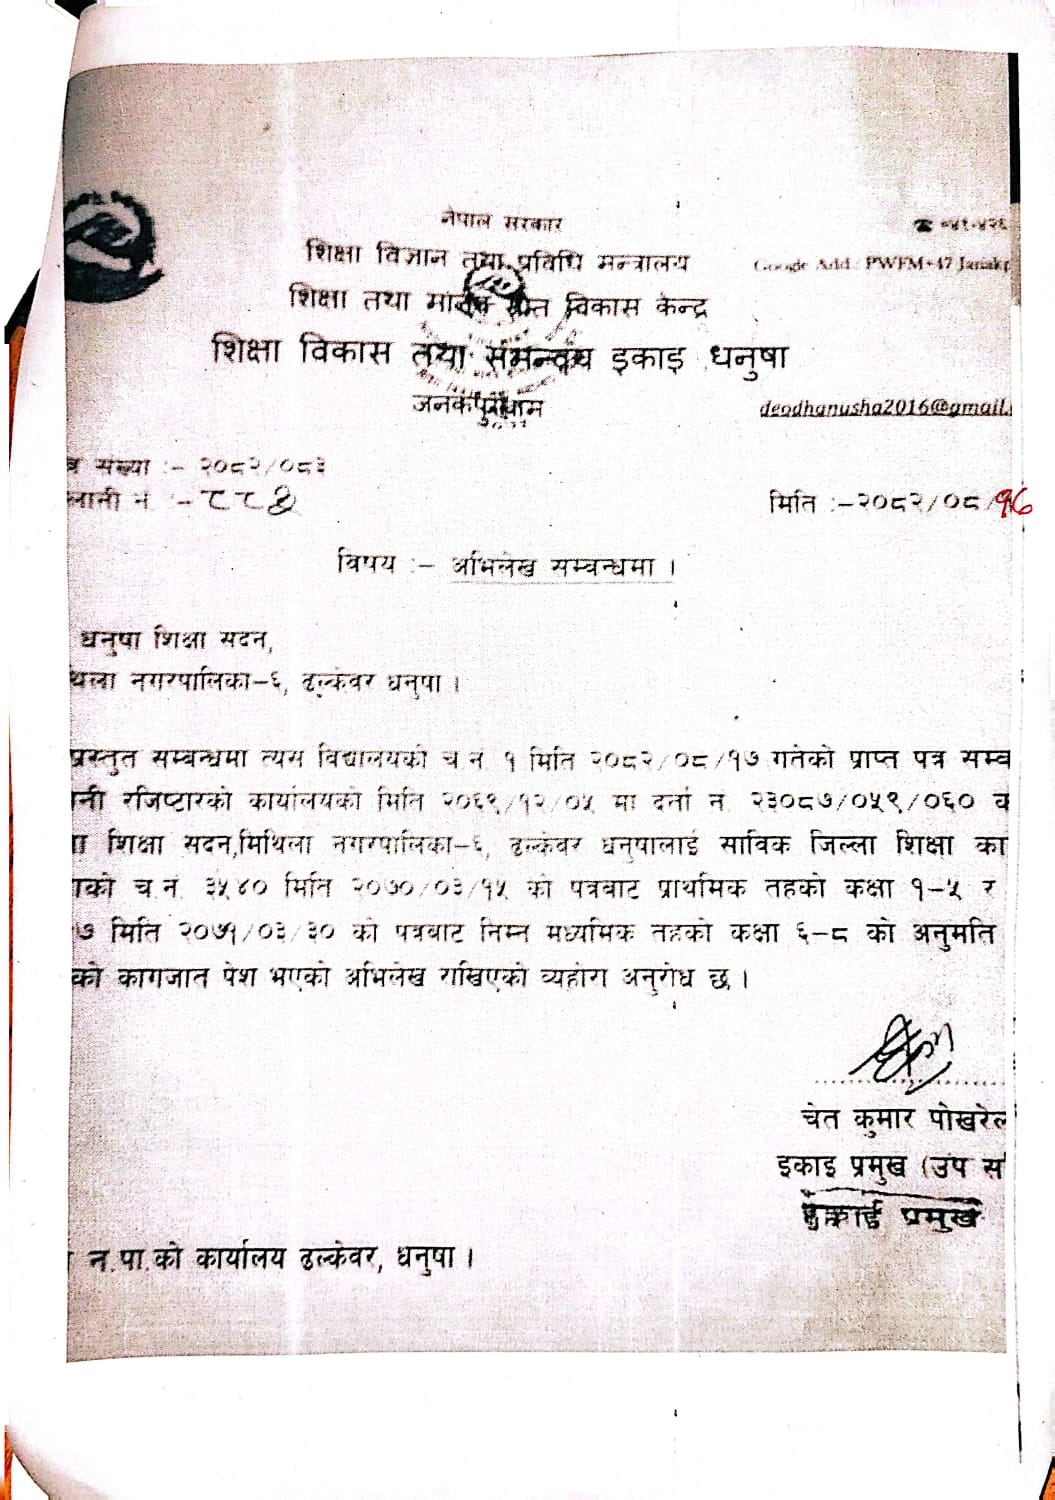 नेपाल सरकार
☎ ०४१-४२६
शिक्षा विज्ञान तथा प्रविधि मन्त्रालय
Google Add: PWFM+47 Janakp
शिक्षा तथा मानव स्रोत विकास केन्द्र
शिक्षा विकास तथा समन्वय इकाइ धनुषा
जनकपुरधाम
deodhanusha2016@gmail.
संख्या :- २०८२/०८३
लानी नं :-
मिति :-२०८२/०८/१६
विषय :- अभिलेख सम्बन्धमा ।
धनुषा शिक्षा सदन,
थिला नगरपालिका-६, ढल्केवर धनुषा ।
प्रस्तुत सम्बन्धमा त्यस विद्यालयको च.नं. १ मिति २०८२/०८/१७ गतेको प्राप्त पत्र सम्ब
नी रजिष्टारको कार्यालयको मिति २०६९/१२/०५ मा दर्ता नं. २३०८७/०५९/०६० व
ा शिक्षा सदन,मिथिला नगरपालिका-६, ढल्केवर धनुषालाई साविक जिल्ला शिक्षा का
को च.नं. ३५४० मिति २०७०/०३/१५ को पत्रबाट प्राथमिक तहको कक्षा १-५ र
७ मिति २०७१/०३/३० को पत्रबाट निम्न मध्यमिक तहको कक्षा ६-८ को अनुमति
को कागजात पेश भएको अभिलेख राखिएको व्यहोरा अनुरोध छ ।
चेत कुमार पोखरेल
इकाइ प्रमुख (उप स
इकाई प्रमुख
न.पा.को कार्यालय ढल्केवर, धनुषा ।